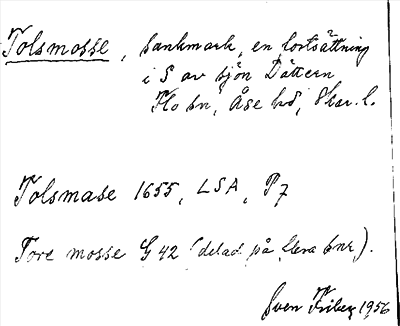 Tolsmosse, sankmark, en fortsättning
i S av sjön Dättern
Flo sn, Åse hd, Skar. l.
Tolsmase 1655, LSA, P7
Tore mosse G 42 (delad på flera snr).
Sven Friberg 1956